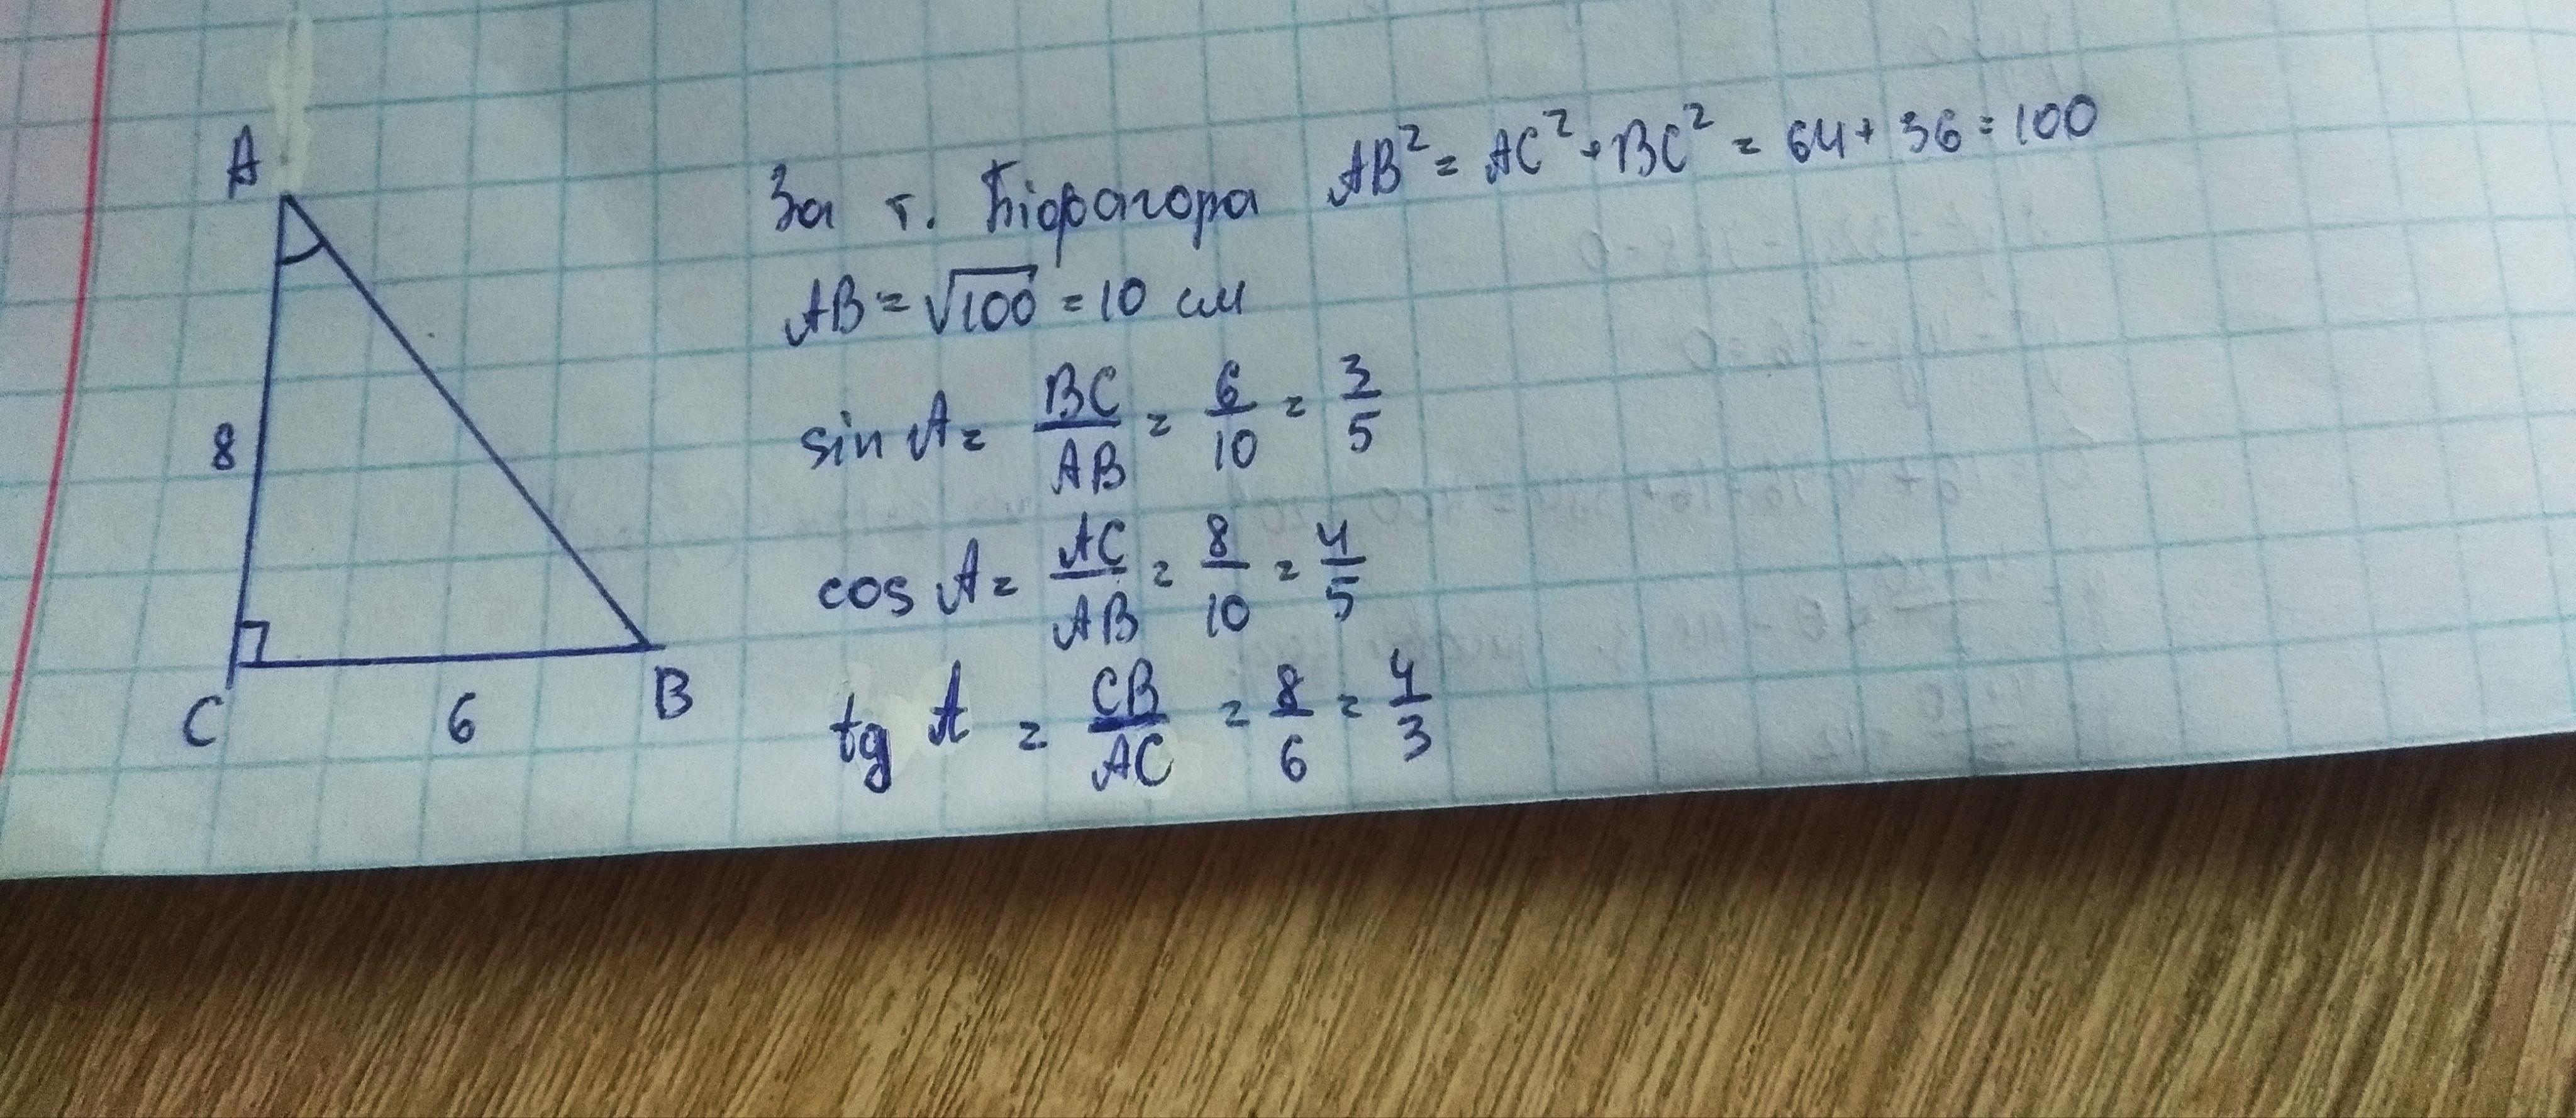 A
8
C
6
B
За т. Піфагора AB² = AC² + BC² = 64 + 36 = 100
AB = √100 = 10 см
sin A = BC/AB = 6/10 = 3/5
cos A = AC/AB = 8/10 = 4/5
tg A = CB/AC = 8/6 = 4/3